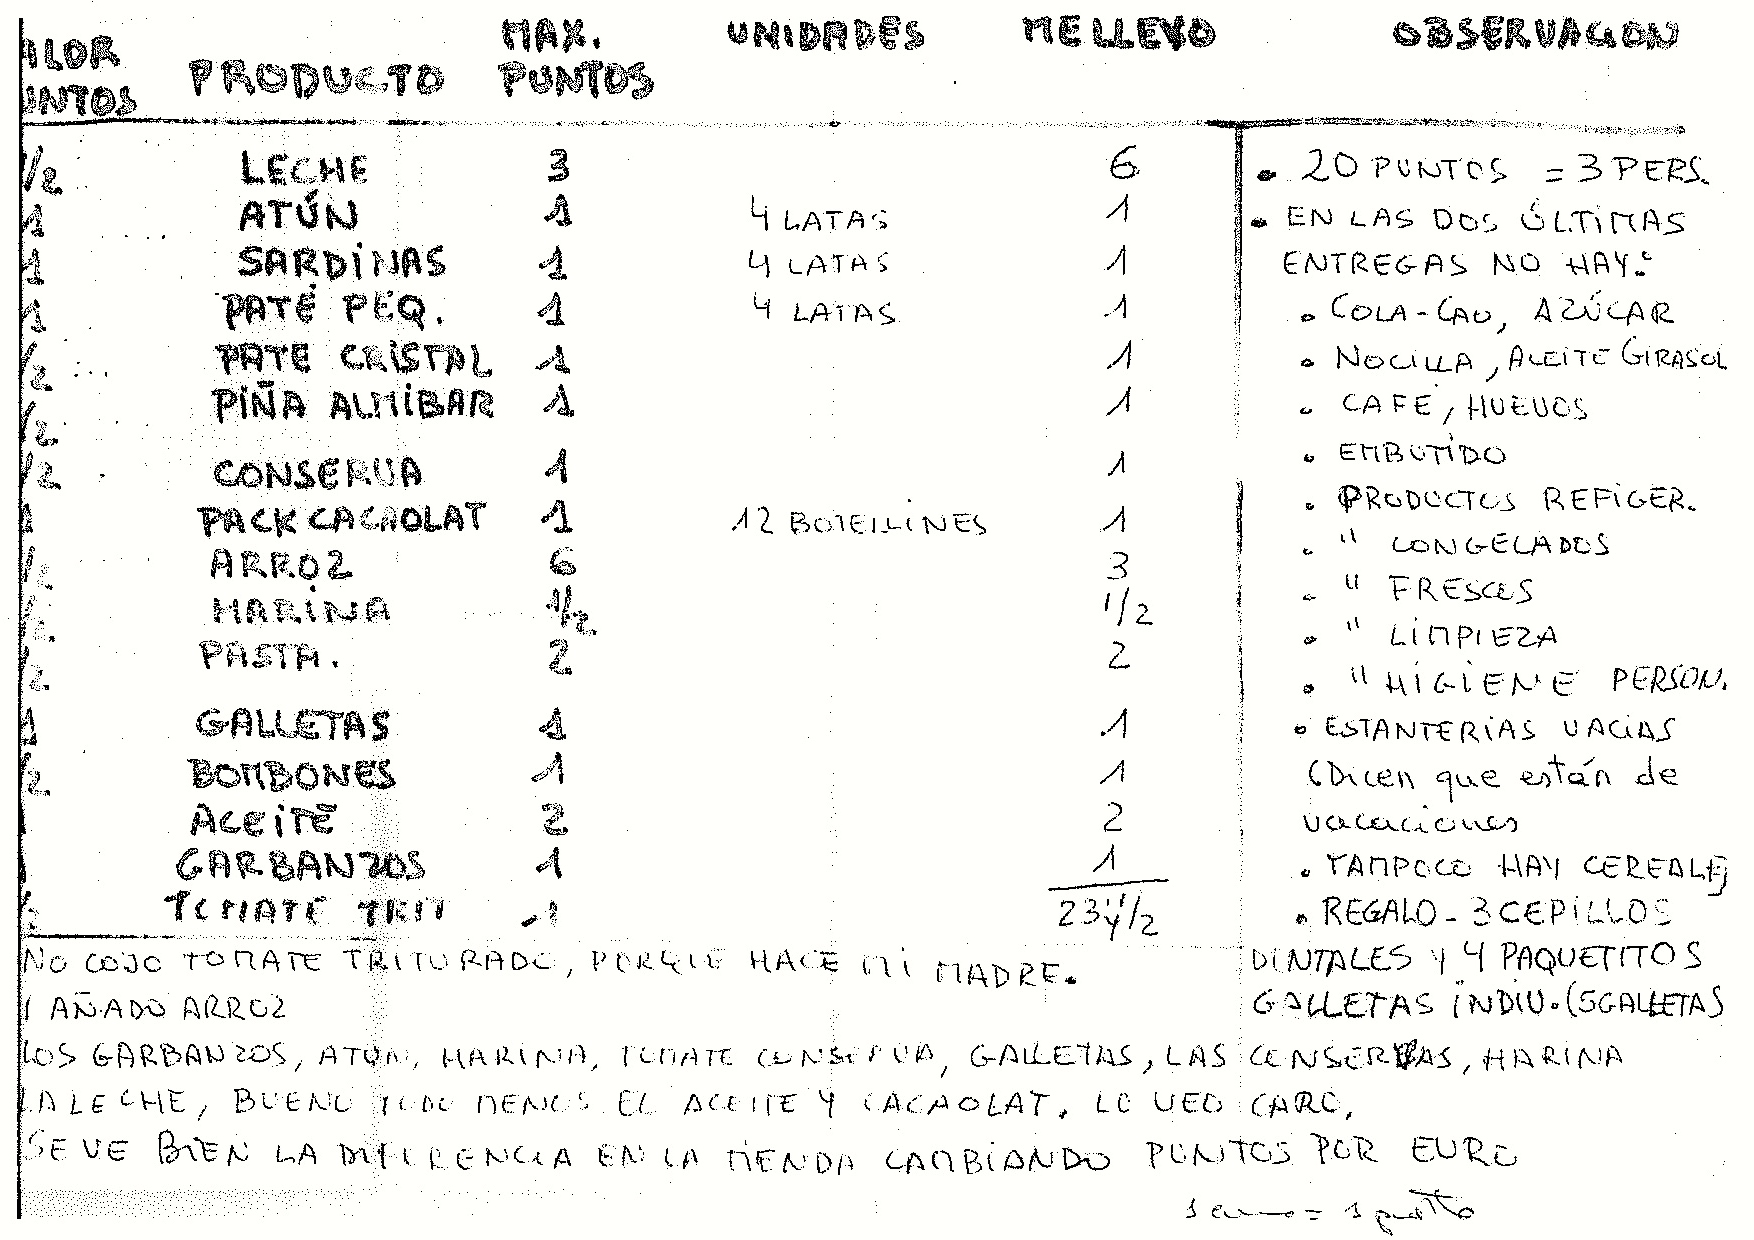 ALOR PUNTOS PRODUCTO MAX. PUNTOS UNIDADES ME LLEVO OBSERVACION
1/2 LECHE 3 6 • 20 PUNTOS = 3 PERS.
1 ATÚN 1 4 LATAS 1 • EN LAS DOS ÚLTIMAS
1 SARDINAS 1 4 LATAS 1 ENTREGAS NO HAY:
1 PATÉ PEQ. 1 4 LATAS 1 • COLA-CAO, AZÚCAR
/2 PATE CRISTAL 1 1 • NOCILLA, ACEITE GIRASOL
/2 PIÑA ALMIBAR 1 1 • CAFE, HUEVOS
• EMBUTIDO
/2 CONSERVA 1 1
• PRODUCTOS REFIGER.
1 PACK CACAOLAT 1 12 BOTELLINES 1
• " CONGELADOS
/2 ARROZ 6 3
• " FRESCOS
/2 HARINA 1/2 1/2
• " LIMPIEZA
/2 PASTA. 2 2
• " HIGIENE PERSON.
1 GALLETAS 1 1 • ESTANTERIAS VACIAS
/2 BOMBONES 1 1 (Dicen que están de
ACEITE 2 2 vacaciones
GARBANZOS 1 1 • TAMPOCO HAY CEREALES
/2 TOMATE TRIT 1 23 1/2 • REGALO - 3 CEPILLOS
DENTALES Y 4 PAQUETITOS
GALLETAS INDIV. (5 GALLETAS
NO COJO TOMATE TRITURADO, PORQUE HACE MI MADRE.
Y AÑADO ARROZ
LOS GARBANZOS, ATÚN, HARINA, TOMATE CONSERVA, GALLETAS, LAS CONSERVAS, HARINA
LA LECHE, BUENO TODO MENOS EL ACEITE Y CACAOLAT. LO VEO CARO.
SE VE BIEN LA DIFERENCIA EN LA TIENDA CAMBIANDO PUNTOS POR EURO
1 euro = 1 punto